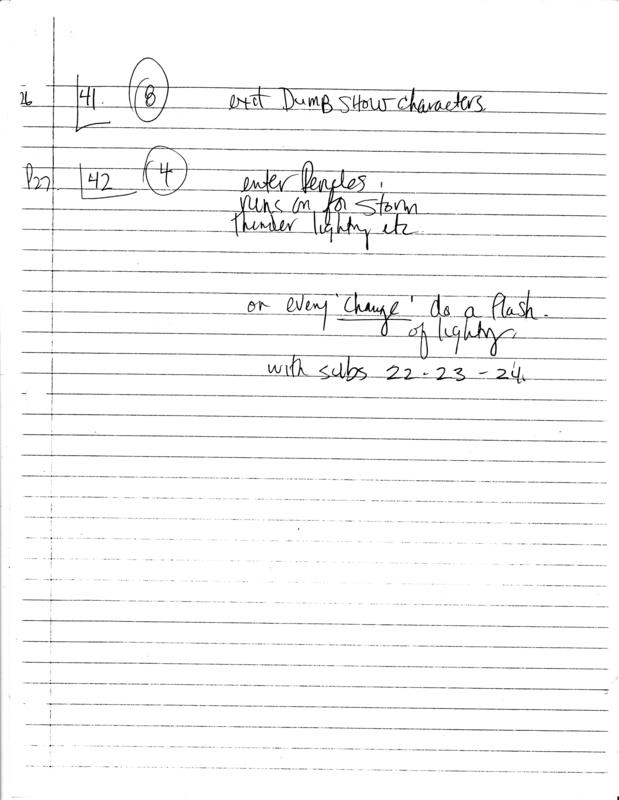 26 41. 8 exit DUMB SHOW characters
P27. 42 4 enter Pericles.
runs on for storm
thunder lightng etc
on every 'change' do a flash.
of lightng,
with subs 22 - 23 - 24.